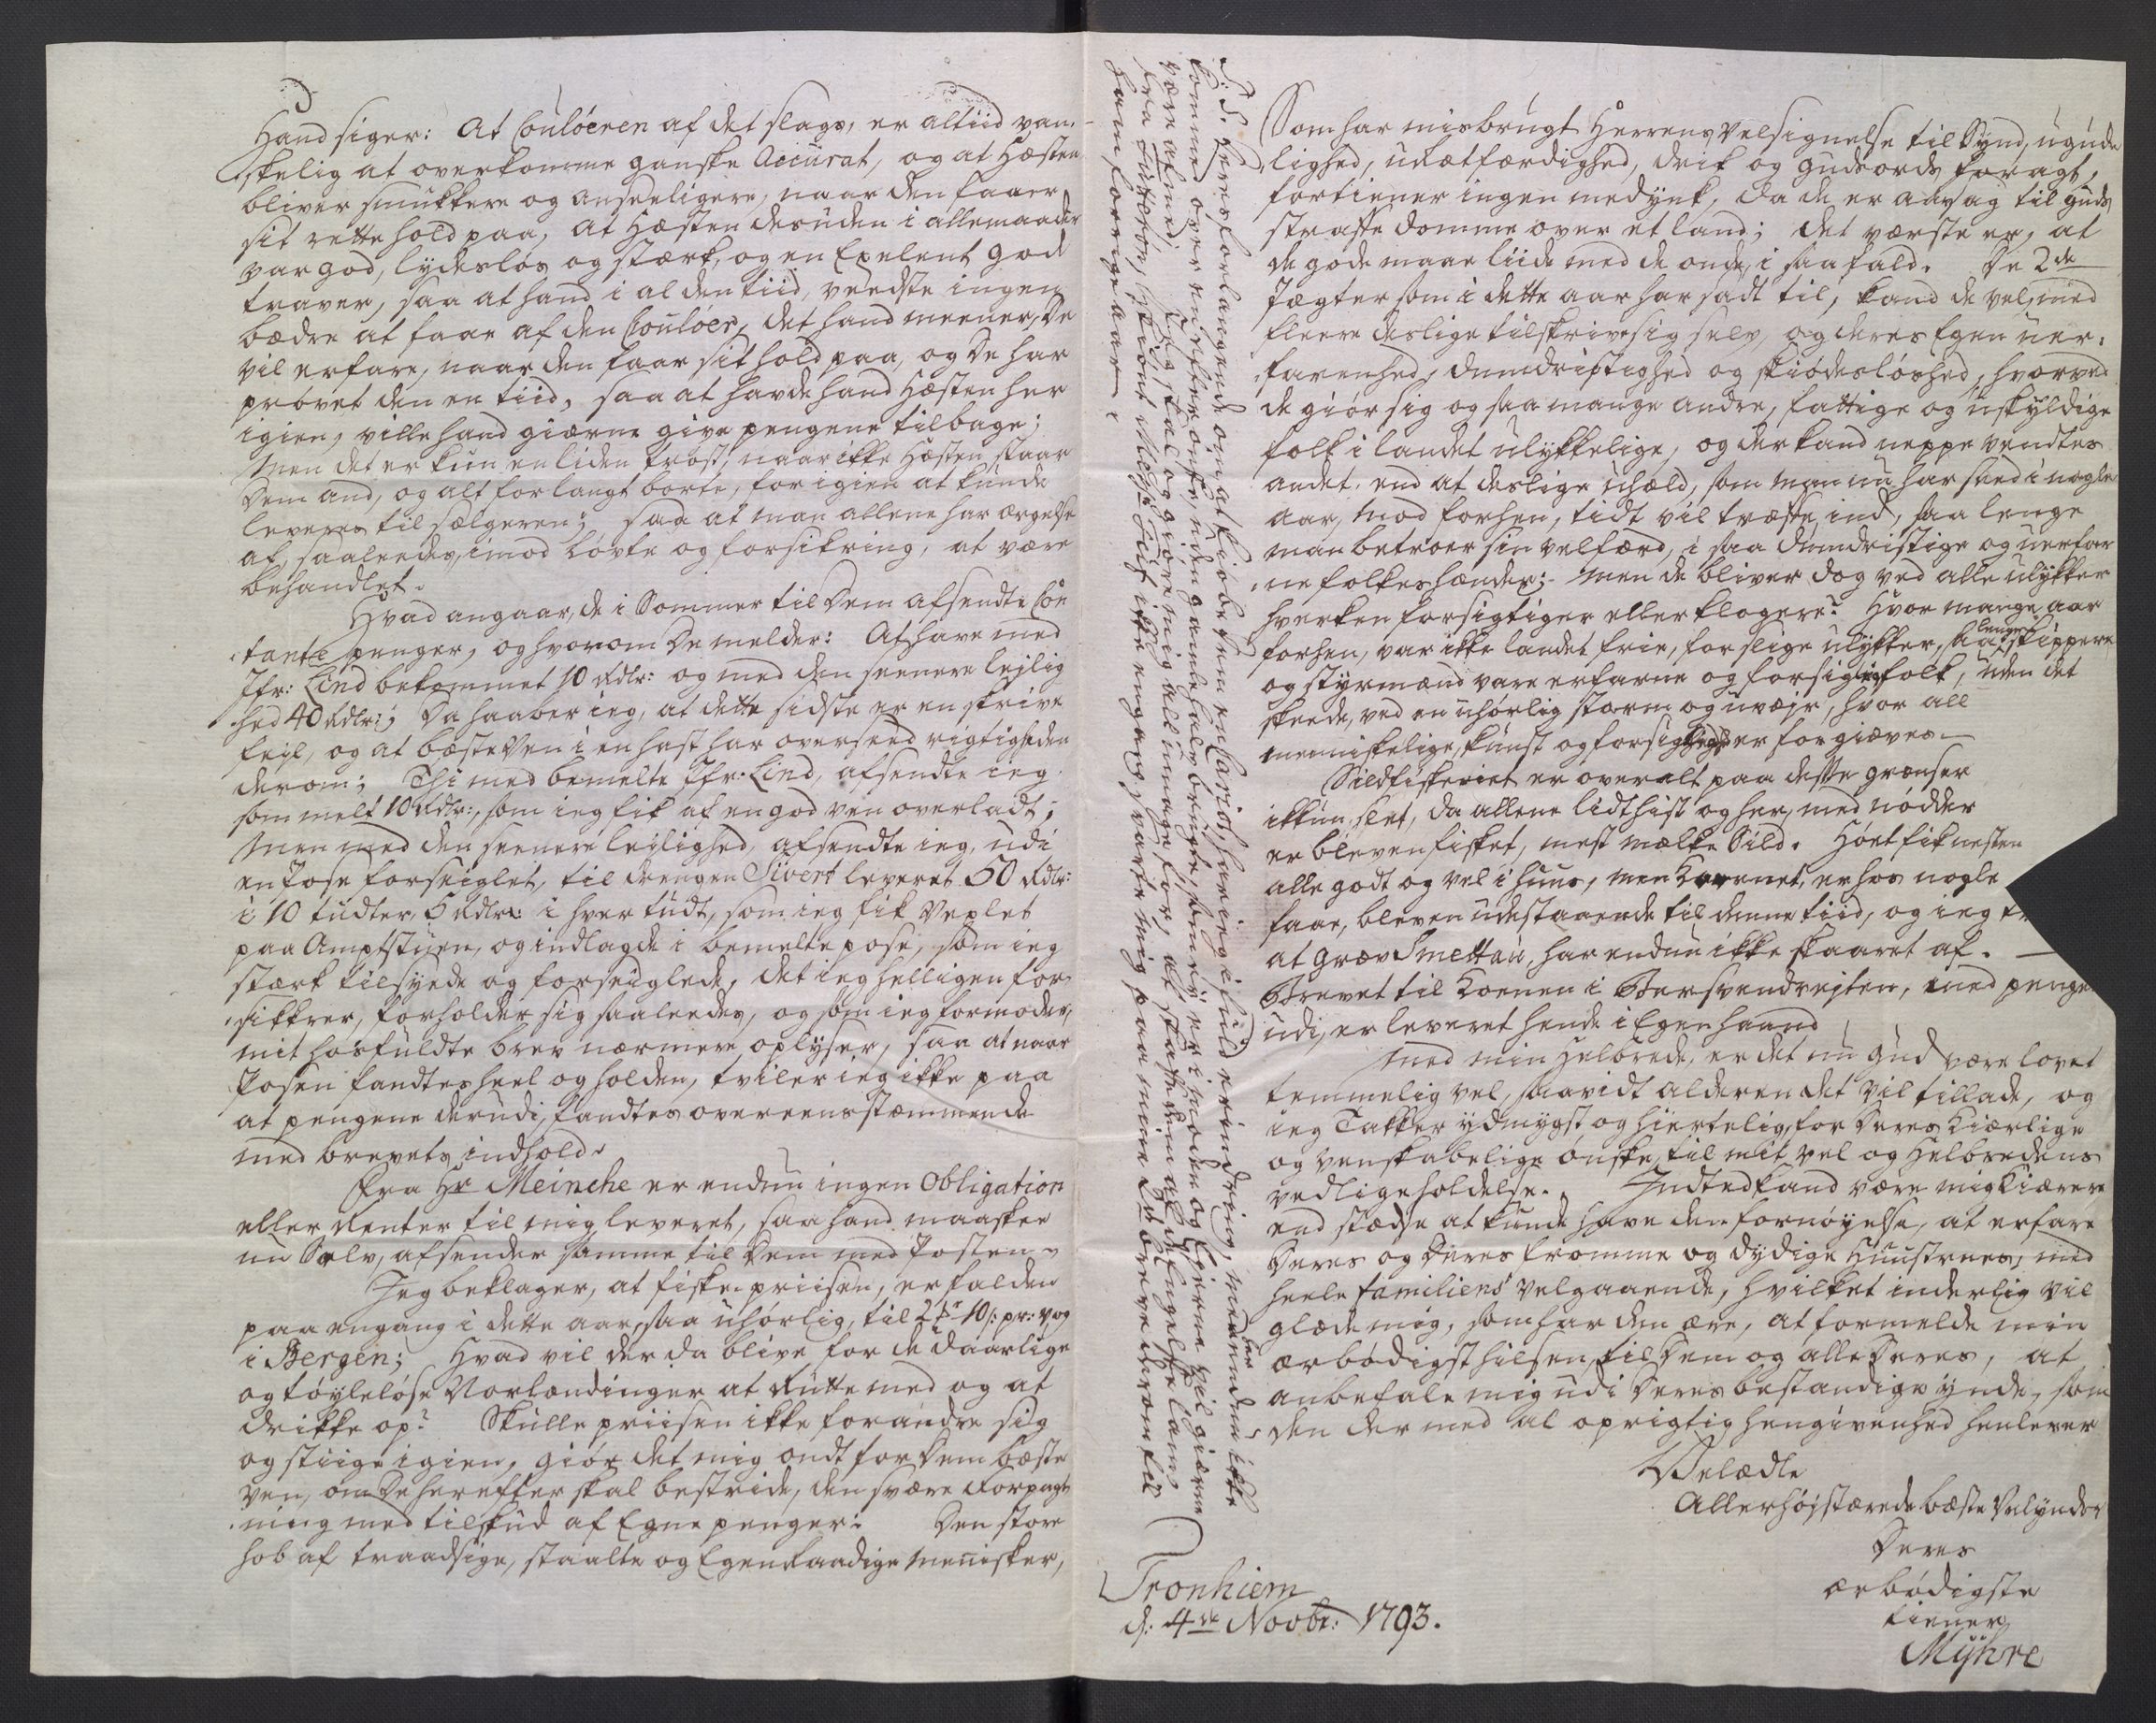 Hand siger: At Couløeren af det slags, er altiid van-
skelig at overkomme ganske Accurat, og at Hæsten
bliver smukkere og anseeligere, naar den faaer
sit rette hold paa, At Hæsten desuden i alle maader
var god, lydesløs og stærk, og en Exelent god
traver, saa at hand i al den tiid, veedste ingen
bædre at faae af den Couløer, det hand meener, De
vil erfare, naar den faar sit hold paa, og De har
prøvet den en tiid, saa at havde hand Hæsten her
igien, ville hand giærne give pengene tilbage;
Men det er kun en liden trøst, naar ikke Hæsten staar
Dem and, og alt for langt borte, for igien at kunde
leveres til sælgeren; saa at man allene har ærgelse
af, saaleedes, imod Løvte og forsikring, at være
behandlet.
Hvad angaar, de i Sommer til Dem afsendte Con
tante penger, og hvorom De melder: At have med
Jfr: Lind bekommet 10 Rdlr: og med den seenere lejlig
hed 40 Rdlr:; Da haaber ieg, at dette sidste er en skrive
fejl, og at bæste Ven i en hast har overseed rigtigheden
derom; Thi med bemelte Jfr. Lind, afsendte ieg
som melt 10 Rdlr:, som ieg fik af en god ven overladt;
Men med den seenere leilighed, afsendte ieg, udi
en Pose forseiglet, til drengen Sivert leveret 50 Rdlr:
i 10 tudter, 5 Rdlr: i hver tudt, som ieg fik Vexlet
paa Amptstuen, og indlagde i bemelte pose, som ieg
stærk tilsyede og forseiglede, det ieg helligen for
sikkrer, forholder sig saaleedes, og som ieg formoder,
mit hosfuldte brev nærmere oplyser, saa at naar
Posen fandtes heel og holden, tviler ieg ikke paa
at pengene derudi, fandtes overeensstæmmende
med brevets indhold.
Fra Hr Meinche er endnu ingen Obligation
eller Renter til mig leveret, saa hand maaskee
nu Selv, afsender samme til Dem med Posten.
Jeg beklager, at fiske priisen, er falden
paa engang i dette aar, saa uhørlig, til 2 10 s: pr: vog
i Bergen; Hvad vil der da blive for de daarlige
og tøyleløse Norlændinger at Rutte med og at
drikke op? Skulle priisen ikke forandre sig
og stiige igien, giør det mig ondt for Dem bæste
Ven, om De herefter skal bestride, den svære Forpagt
ning med tilskud af Egne penger: Den store
hob af traadsige, staalte og Egenraadige Menisker,
Som har misbrugt Herrens Velsignelse til Synd, ugude
lighed, uretfærdighed, drik og guds ords foragt,
fortiener ingen medynk, da de er aarsag til guds
straffe domme over et land; det værste er, at
de gode maae liide med de onde, i saa fald. De 2de
Jægter som i dette aar har sadt til, kand de vel, med
fleere deslige tilskrive sig selv, og deres Egen uer-
farenhed, dumdristighed og skiødesløshed, hvorved
de giør sig og saa mange andre, fattige og uskyldige
folk i landet ulykkelige, og der kand neppe vendtes
andet end at deslige uheld, som man nu har seed i nogle
aar, mod forhen, tidt vil træffe ind, saa lenge
man betroer sin velfærd, i saa dumdristige og uerfar
ne folkes hænder: Men de bliver dog ved alle ulykker
hverken forsigtiger eller klogere? Hvor mange aar
forhen, var ikke landet frie, for slige ulykker, saa lenge skippere
og styrmænd vare erfarne og forsigtige folk, uden det
skeede, ved en uhørlig storm og uvejr, hvor all
menniskelige kunst og forsigtighed er forgiæves.
Sildfiskeriet er overalt paa disse grænser
ikkun slet, da allene lidt hist og her, med nødder
er bleven fisket, mest melke Sild. Høet fik nesten
alle godt og vel i huus, men Kornet, er hos nogle
faae, bleven udestaaende til denne tiid, og ieg
at græv Smettau, har endnu ikke skaaret af.
Brevet til Konen i Børsvendvejten, med penge
udi, er leveret hende i Egen haand
Med min Helbrede, er det nu Gud være lovet
temmelig vel, saavidt alderen det vil tillade, og
ieg Takker ydmygst og hiertelig, for Deres Kiærlige
og venskabelige ønske, til mit vel og Helbredens
vedligeholdelse. Indtedkand være mig kiærere
end stædse at kunde have den fornøyelse, at erfare
Deres og Deres fromme og dydige Huustrues, med
heele familiens velgaaende, hvilket inderlig vil
glæde mig, som har den ære, at formelde min
ærbødigst hilsen, til Dem og alle Deres, at
anbefale mig udi Deres bestandige ynde, som
den der med al oprigtig hengivenhed henlever
Velædle
Allerhøjstærede bæste Velynder
Deres
ærbødigste
tiener
Myhre
Tronhiem
d: 4de Novbr: 1793.
P: S. Deres forlangende om at kiøbe Dem en Cariol har ieg i fuld erindring, men endnu ikke
kommed over en efter ønske, uden gamle halvbrugte, som ey er i moden og Eyerne vil giærne
være af med. Jeg skal og giøre mig all umage for, at skaffe Dem af de Engelske lam
fra Tutterøe, skiønt ikke engang svarte mig paa mine 2de breve derom til
ham forrige aar.